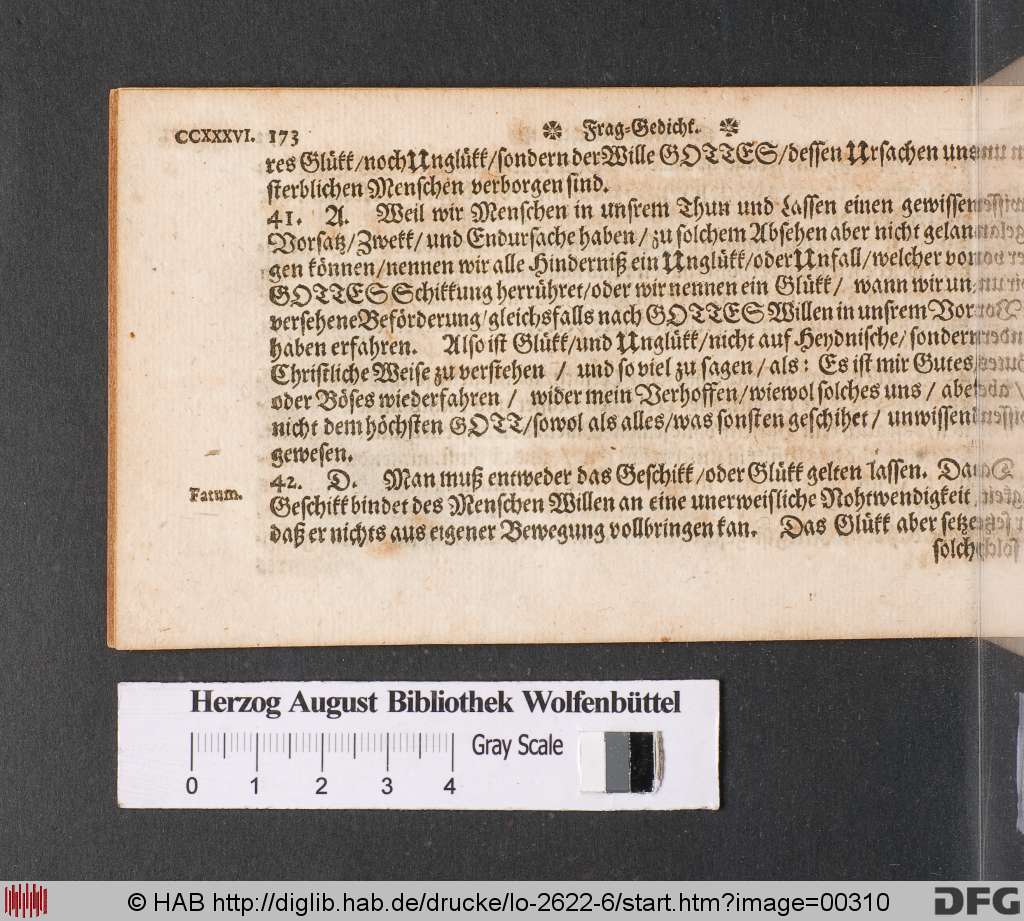 CCXXXVI. 173 ❊ Frag-Gedicht. ❊
res Glükk/noch Unglükk/sondern der Wille GOTTES/dessen Ursachen uns
sterblichen Menschen verborgen sind.
41. A. Weil wir Menschen in unsrem Thun und Lassen einen gewissen
Vorsatz/Zwekk/und Endursache haben/zu solchem Absehen aber nicht gelan-
gen können/nennen wir alle Hinderniß ein Unglükk/oder Unfall/welcher von
GOTTES Schikkung herrühret/oder wir nennen ein Glükk/ wann wir un-
versehene Beförderung/gleichsfalls nach GOTTES Willen in unsrem Vor-
haben erfahren. Also ist Glükk/und Unglükk/nicht auf Heydnische/sondern
Christliche Weise zu verstehen / und so viel zu sagen/als: Es ist mir Gutes
oder Böses wiederfahren / wider mein Verhoffen/wiewol solches uns / aber
nicht dem höchsten GOTT/sowol als alles/was sonsten geschihet/ unwissend
gewesen.
42. D. Man muß entweder das Geschikk/oder Glükk gelten lassen. Das
Fatum.
Geschikk bindet des Menschen Willen an eine unerweisliche Nohtwendigkeit
daß er nichts aus eigener Bewegung vollbringen kan. Das Glükk aber setze
solch
Herzog August Bibliothek Wolfenbüttel
Gray Scale
0 1 2 3 4
© HAB http://diglib.hab.de/drucke/lo-2622-6/start.htm?image=00310
DFG